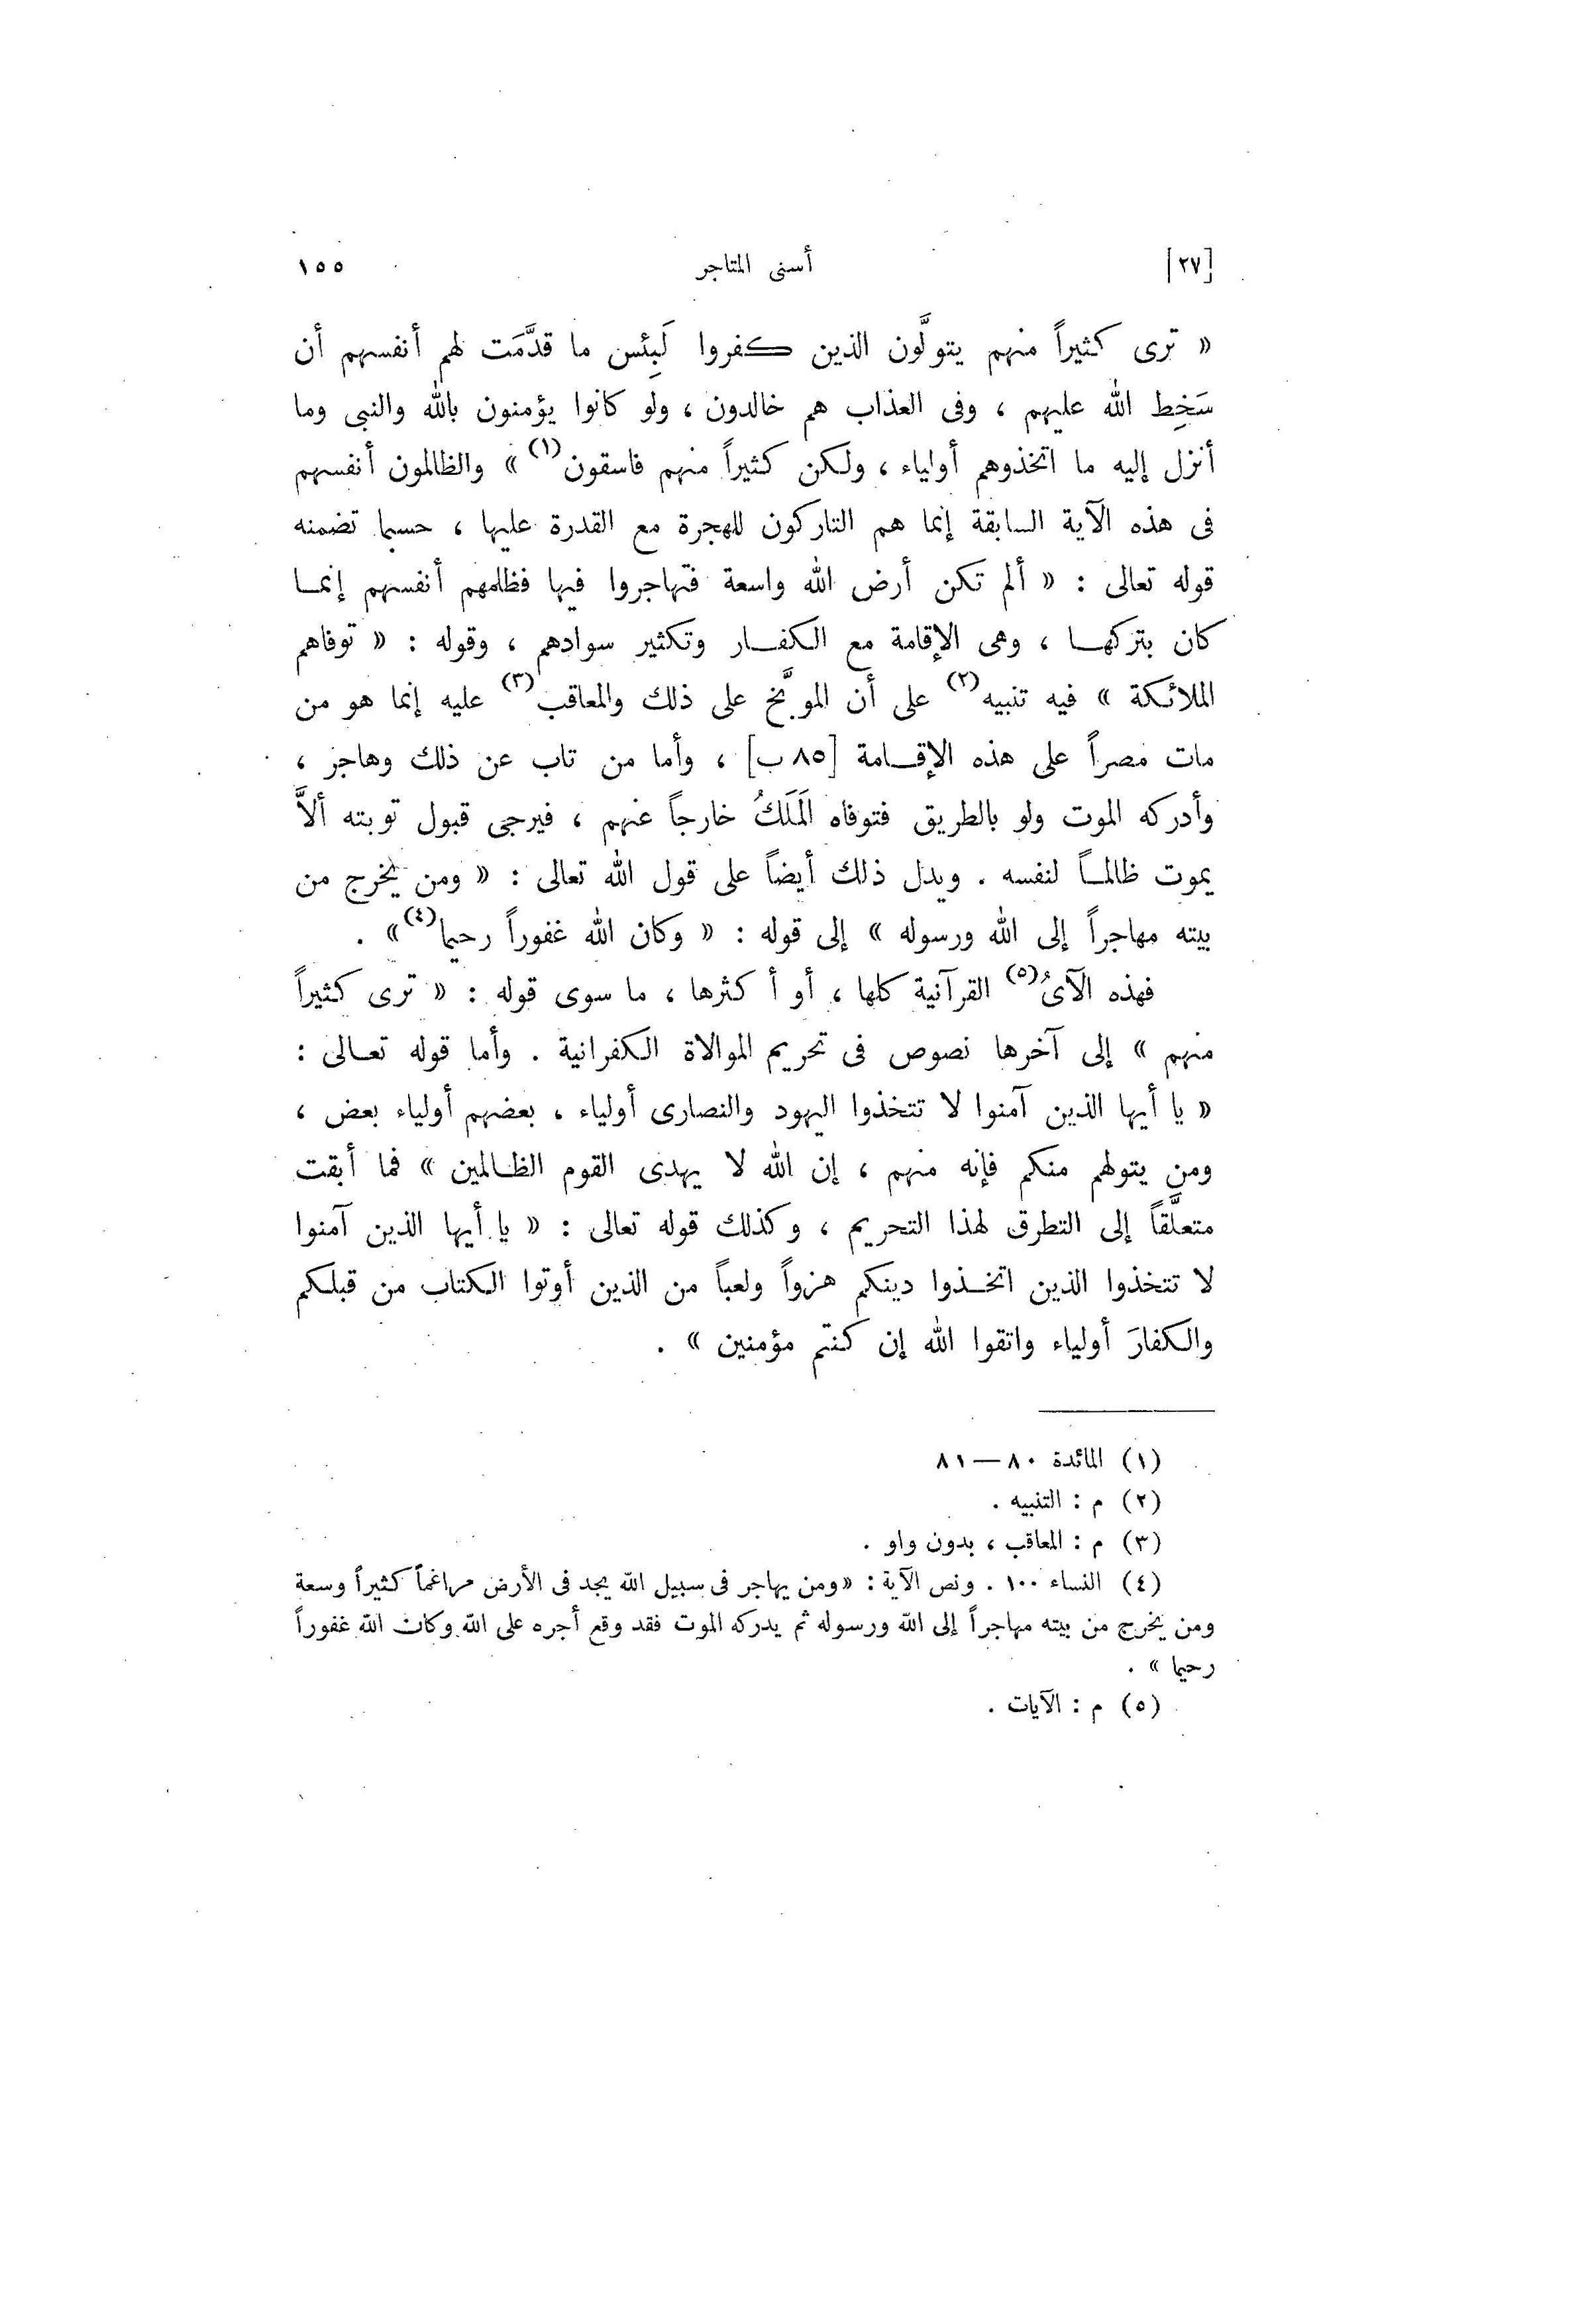 [٢٧] أسنى المتاجر ١٥٥
« ترى كثيراً منهم يتولَّون الذين كفروا لَبِئس ما قدَّمَت لهم أنفسهم أن
سَخِط الله عليهم ، وفى العذاب هم خالدون ، ولو كانوا يؤمنون بالله والنبى وما
أنزل إليه ما اتخذوهم أولياء ، ولكن كثيراً منهم فاسقون(١) » والظالمون أنفسهم
فى هذه الآية السابقة إنما هم التاركون للهجرة مع القدرة عليها ، حسبما تضمنه
قوله تعالى : « ألم تكن أرض الله واسعة فتهاجروا فيها فظلمهم أنفسهم إنما
كان بتركها ، وهى الإقامة مع الكفار وتكثير سوادهم ، وقوله : « توفاهم
الملائكة » فيه تنبيه(٢) على أن الموبَّخ على ذلك والمعاقب(٣) عليه إنما هو من
مات مصراً على هذه الإقامة [٨٥ ب] ، وأما من تاب عن ذلك وهاجر ،
وأدركه الموت ولو بالطريق فتوفاه المَلَكُ خارجاً عنهم ، فيرجى قبول توبته ألاَّ
يموت ظالماً لنفسه . ويدل ذلك أيضاً على قول الله تعالى : « ومن يخرج من
بيته مهاجراً إلى الله ورسوله » إلى قوله : « وكان الله غفوراً رحيما(٤) » .
فهذه الآىُ(٥) القرآنية كلها ، أو أكثرها ، ما سوى قوله : « ترى كثيراً
منهم » إلى آخرها نصوص فى تحريم الموالاة الكفرانية . وأما قوله تعالى :
« يا أيها الذين آمنوا لا تتخذوا اليهود والنصارى أولياء ، بعضهم أولياء بعض ،
ومن يتولهم منكم فإنه منهم ، إن الله لا يهدى القوم الظالمين » فما أبقت
متعلَّقاً إلى التطرق لهذا التحريم ، وكذلك قوله تعالى : « يا أيها الذين آمنوا
لا تتخذوا الذين اتخذوا دينكم هزواً ولعباً من الذين أوتوا الكتاب من قبلكم
والكفارَ أولياء واتقوا الله إن كنتم مؤمنين » .
(١) المائدة ٨٠ — ٨١
(٢) م : التنبيه .
(٣) م : المعاقب ، بدون واو .
(٤) النساء ١٠٠ . ونص الآية : «ومن يهاجر فى سبيل الله يجد فى الأرض مراغماً كثيراً وسعة
ومن يخرج من بيته مهاجراً إلى الله ورسوله ثم يدركه الموت فقد وقع أجره على الله وكان الله غفوراً
رحيما » .
(٥) م : الآيات .